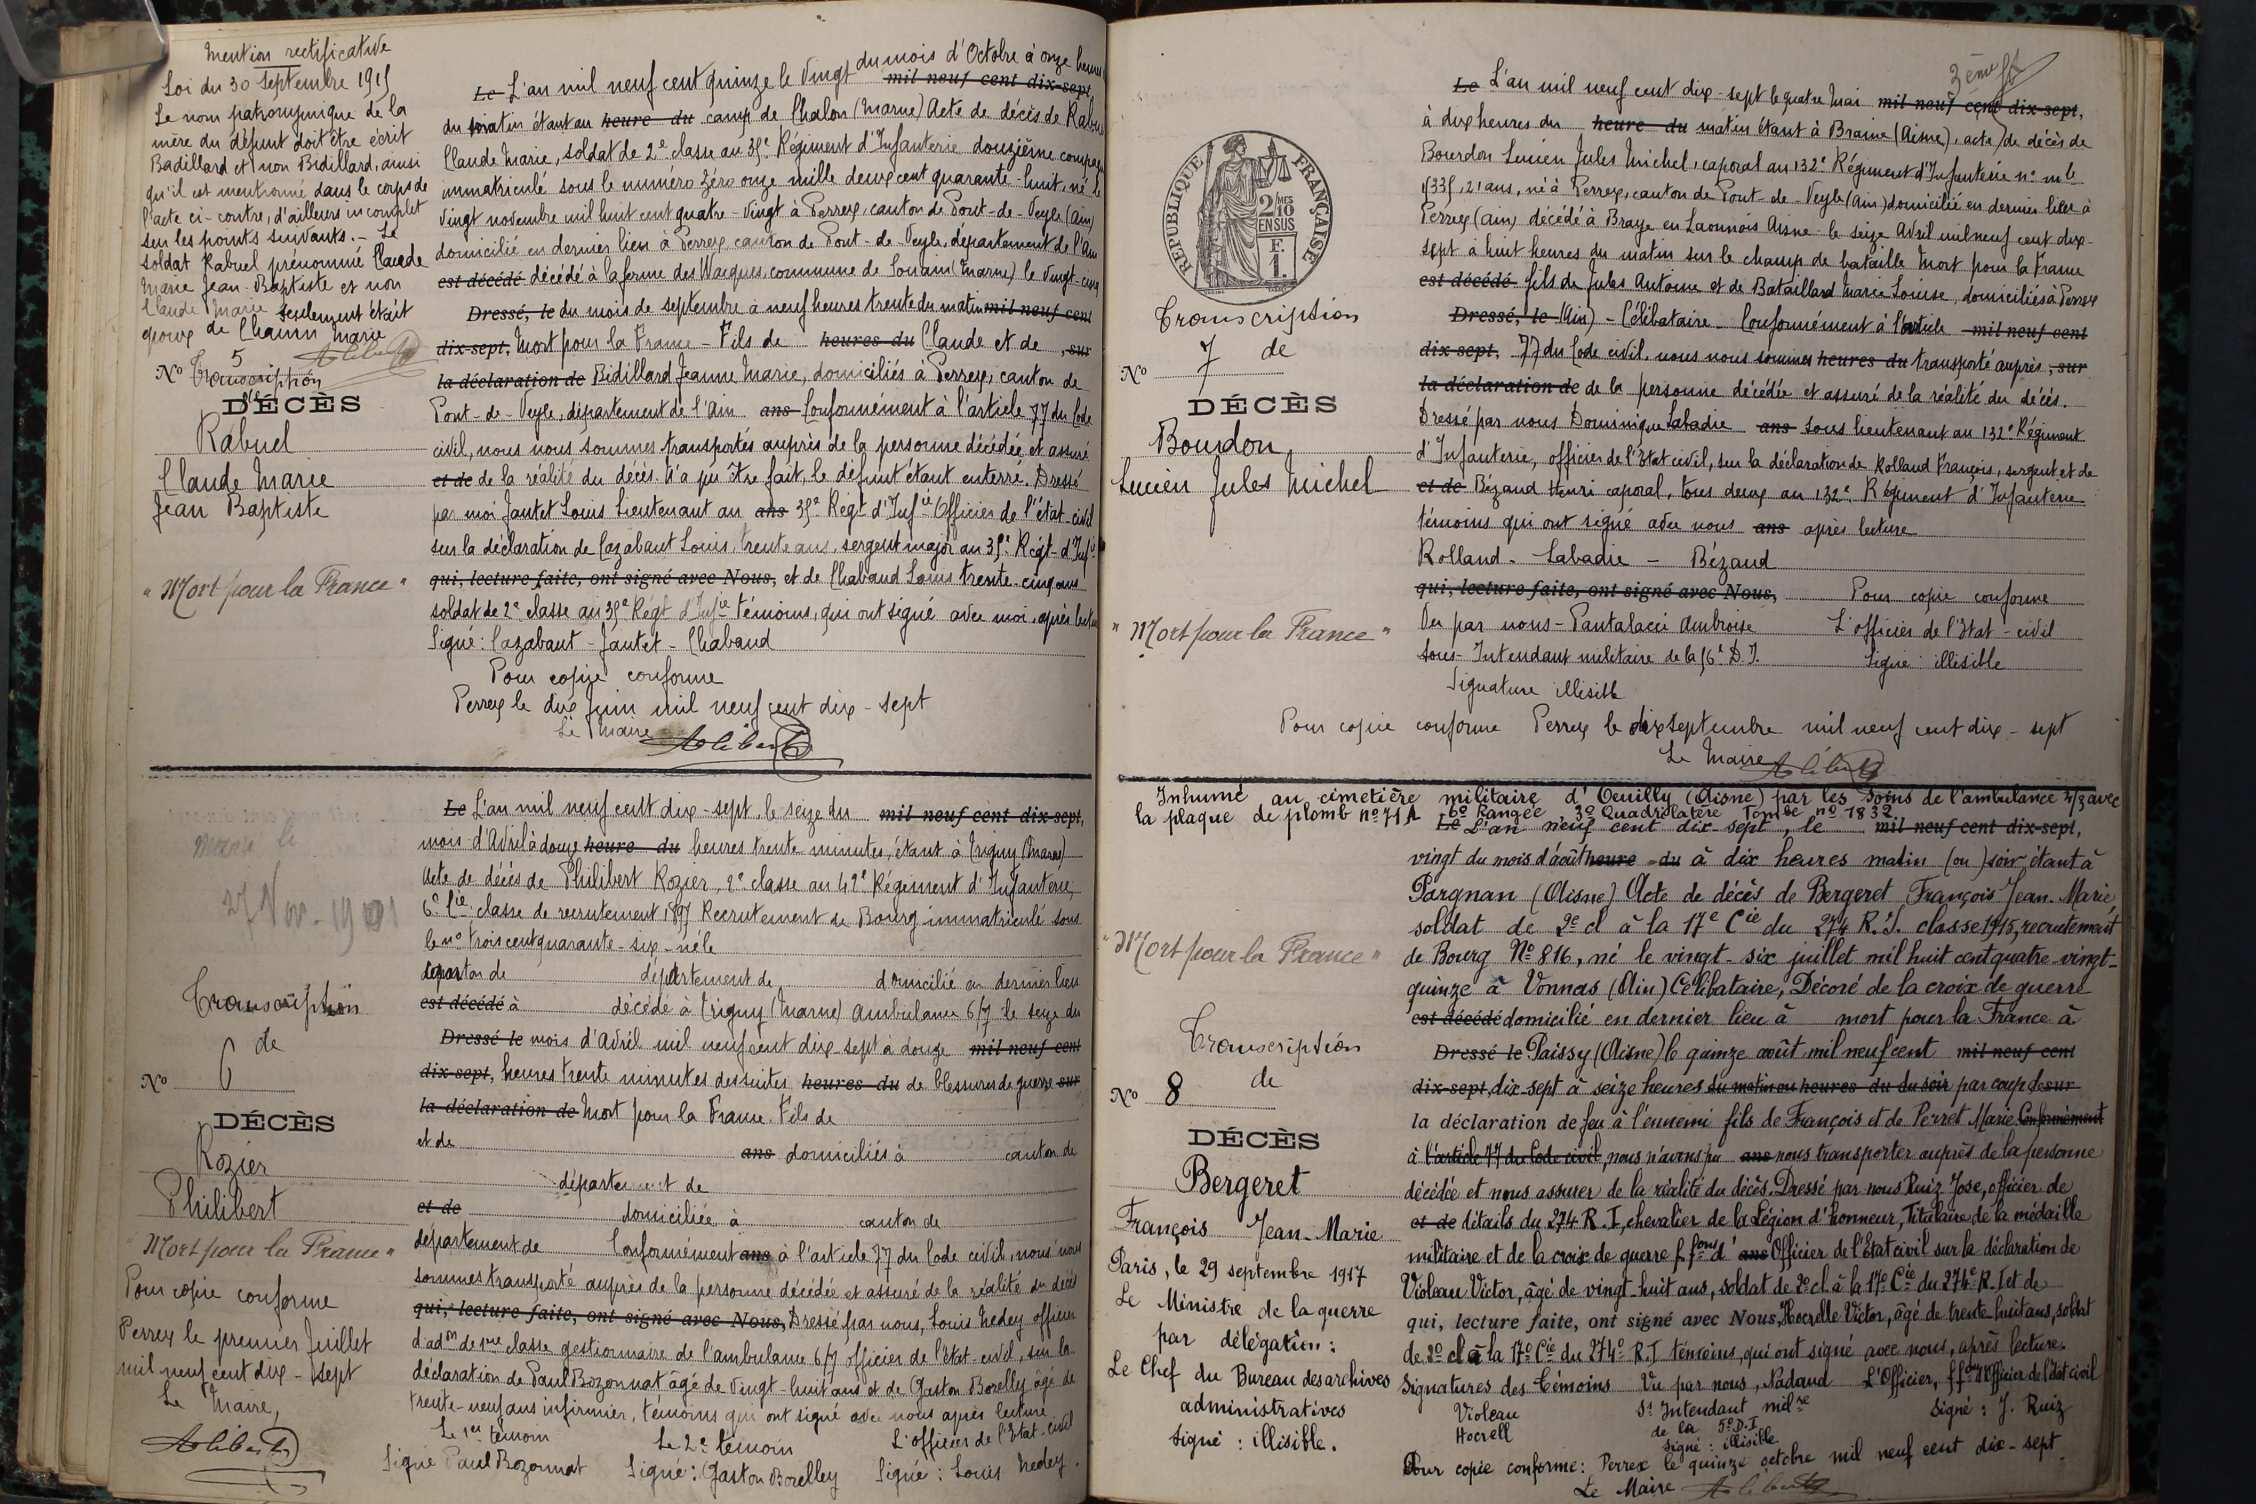 Mention rectificative
Loi du 30 septembre 1915
Le nom patronymique de la
mère du défunt doit être écrit
Badillard et non Bidillard, ainsi
qu'il est mentionné dans le corps de
l'acte ci-contre, d'ailleurs incomplet
sur les points suivants. - Le
soldat Rabuel prénommé Claude
Marie Jean-Baptiste et non
Claude Marie seulement était
époux de Chanin Marie
No 5
Transcription
de
DÉCÈS
Rabuel
Claude Marie
Jean Baptiste
"Mort pour la France"
Le L'an mil neuf cent quinze le vingt du mois d'Octobre à onze heures mil neuf cent dix-sept,
du matin étant au heure du camp de Chalon (Marne) Acte de décès de Rabuel
Claude Marie, soldat de 2e classe au 35e Régiment d'Infanterie douzième compag
immatriculé sous le numéro zéro onze mille deux cent quarante-huit, né le
vingt novembre mil huit cent quatre-vingt à Perrex, canton de Pont-de-Veyle (Ain)
domicilié en dernier lieu à Perrex canton de Pont-de-Veyle, département de l'Ain
est décédé décédé à la ferme des Wacques, commune de Souain (Marne) le vingt-cinq
Dressé, le du mois de septembre à neuf heures trente du matin mil neuf cent
dix-sept, Mort pour la France - Fils de heures du Claude et de , sur
la déclaration de Bidillard Jeanne Marie, domiciliés à Perrex, canton de
Pont-de-Veyle, département de l'Ain ans Conformément à l'article 77 du Code
civil, nous nous sommes transportés auprès de la personne décédée et assuré
et de de la réalité du décès. N'a pu être fait, le défunt étant enterré. Dressé
par moi Jautet Louis Lieutenant au ans 35e Régt d'Infie Officier de l'état-civil
sur la déclaration de Cazabaut Louis, trente ans, sergent major au 35e Régt d'Infie
qui, lecture faite, ont signé avec Nous, et de Chabaud Louis trente-cinq ans
soldat de 2e classe au 35e Régt d'Infie témoins, qui ont signé avec moi, après lecture
Signé : Cazabaut - Jautet - Chabaud
Pour copie conforme
Perrex le dix Juin mil neuf cent dix-sept
Le Maire
27 Nov - 1901
Transcription
de
No 6
DÉCÈS
Rozier
Philibert
"Mort pour la France"
Pour copie conforme
Perrex le premier Juillet
mil neuf cent dix-sept
Le Maire,
Le L'an mil neuf cent dix-sept le seize du mil neuf cent dix-sept,
mois d'Avril à douze heure du heures trente minutes, étant à Trigny (Marne)
Acte de décès de Philibert Rozier, 2e classe au 42e Régiment d'Infanterie,
6e Cie classe de recrutement 1897 Recrutement de Bourg immatriculé sous
le no trois cent quarante-six - né le
canton de département de domicilié en dernier lieu
est décédé à décédé à Trigny (Marne) Ambulance 6/7 le seize du
Dressé le mois d'Avril mil neuf cent dix-sept à douze mil neuf cent
dix-sept, heures trente minutes des suites heures du de blessures de guerre sur
la déclaration de Mort pour la France. Fils de
et de ans domiciliés à canton de
département de
et de domiciliée à canton de
département de Conformément ans à l'article 77 du Code civil, nous nous
sommes transporté auprès de la personne décédée et assuré de la réalité du décès
qui, lecture faite, ont signé avec Nous, Dressé par nous, Louis Nedey officier
d'adon de 1ère classe gestionnaire de l'ambulance 6/7 officier de l'état-civil, sur la
déclaration de Paul Bozonnat âgé de vingt-huit ans et de Gaston Borelley âgé de
trente-neuf ans infirmier, témoins qui ont signé avec nous après lecture.
Le 1er témoin Le 2e témoin L'officier de l'Etat-civil
Signé Paul Bozonnat Signé : Gaston Borelley Signé : Louis Nedey.
RÉPUBLIQUE FRANÇAISE
2/10 MES
EN SUS
F.
1.
Transcription
de
No 7
DÉCÈS
Bourdon
Lucien Jules Michel
"Mort pour la France"
3ème
Le L'an mil neuf cent dix-sept le quatre Mai mil neuf cent dix-sept,
à dix heures du heure du matin étant à Braine (Aisne), acte de décès de
Bourdon Lucien Jules Michel, caporal au 132e Régiment d'Infanterie no mle
5335, 21 ans, né à Perrex, canton de Pont-de-Veyle (Ain) domicilié en dernier lieu à
Perrex (Ain) décédé à Braye en Laonnois Aisne le seize Avril mil neuf cent dix-
sept à huit heures du matin sur le champ de bataille Mort pour la France
est décédé fils de Jules Antoine et de Bataillard Marie Louise, domiciliés à Perrex
Dressé, le (Ain) - Célibataire - Conformément à l'article mil neuf cent
dix-sept, 77 du Code civil, nous nous sommes heures du transporté auprès , sur
la déclaration de de la personne décédée et assuré de la réalité du décès.
Dressé par nous Dominique Labadie ans Sous lieutenant au 132e Régiment
d'Infanterie, officier de l'Etat civil, sur la déclaration de Rolland François, sergent et de
et de Bézaud Henri caporal, tous deux au 132e Régiment d'Infanterie
témoins qui ont signé avec nous ans après lecture
Rolland - Labadie - Bézaud
qui, lecture faite, ont signé avec Nous, Pour copie conforme
Vu par nous - Pantalacci Ambroise L'officier de l'Etat-civil
Sous-Intendant militaire de la 56e D.I. Signé : illisible
Signature illisible
Pour copie conforme Perrex le dix septembre mil neuf cent dix-sept
Le Maire
Inhumé au cimetière militaire d'Oeuilly (Aisne) par les soins de l'ambulance 2/3 avec
la plaque de plomb no 71 A 6e Rangée 3e Quadrilatère Tombe no 1832
"Mort pour la France"
Transcription
de
No 8
DÉCÈS
Bergeret
François Jean-Marie
Paris, le 29 septembre 1917
Le Ministre de la guerre
par délégation :
Le Chef du Bureau des archives
administratives
signé : illisible.
Le L'an neuf cent dix-sept, le mil neuf cent dix-sept,
vingt du mois d'août heure du à dix heures matin (ou) soir étant à
Pargnan (Aisne) Acte de décès de Bergeret François Jean-Marie,
soldat de 2e cl à la 17e Cie du 274 R.I. classe 1915, recrutement
de Bourg No 816, né le vingt-six juillet mil huit cent quatre-vingt-
quinze à Vonnas (Ain) Célibataire, Décoré de la croix de guerre
est décédé domicilié en dernier lieu à mort pour la France à
Dressé le Paissy (Aisne) le quinze août mil neuf cent mil neuf cent
dix-sept, dix-sept à seize heures du matin ou heures du du soir par coup de sur
la déclaration de feu à l'ennemi fils de François et de Perret Marie Conformément
à l'article 77 du Code civil, nous n'avons pu ans nous transporter auprès de la personne
décédée et nous assurer de la réalité du décès. Dressé par nous Ruiz Jose, officier de
et de détails du 274 R.I, chevalier de la Légion d'honneur, Titulaire de la médaille
militaire et de la croix de guerre f.fons d'ans Officier de l'Etat civil sur la déclaration de
Violeau Victor, âgé de vingt-huit ans, soldat de 2e cl à la 17e Cie du 274e R.I et de
qui, lecture faite, ont signé avec Nous, Hocrelle Victor, âgé de trente huit ans, soldat
de 2e cl à la 17e Cie du 274e R.I témoins, qui ont signé avec nous, après lecture.
Signatures des Témoins Vu par nous, Nadaud L'Officier, ffons d'Officier de l'Etat civil
Violeau St Intendant milre signé : J. Ruiz
Hocrell de la 5e D.I
signé : illisible
Pour copie conforme : Perrex le quinze octobre mil neuf cent dix-sept.
Le Maire